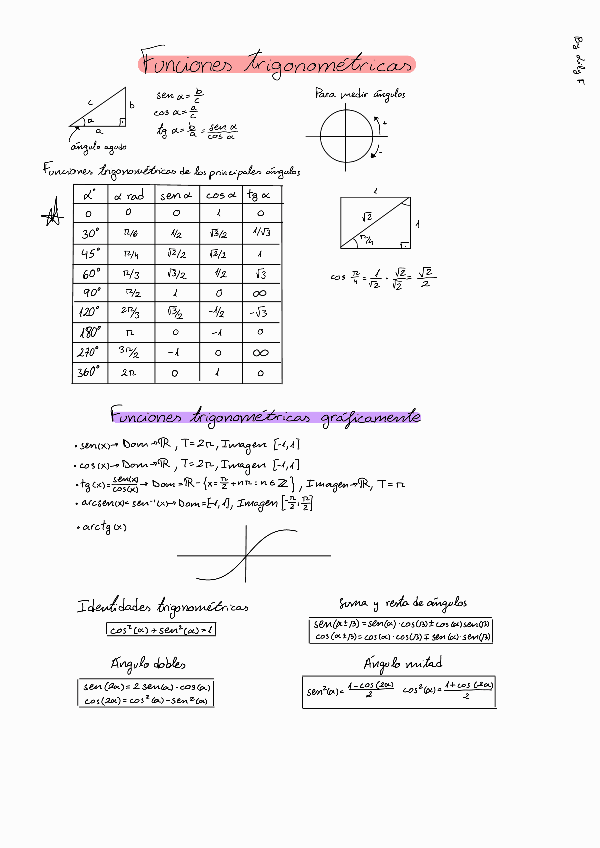 By Lily F.
Funciones trigonométricas
c b
α
a
ángulo agudo
sen α = b/c
cos α = a/c
tg α = b/a = sen α/cos α
Para medir ángulos
+
-
Funciones trigonométricas de los principales ángulos
α° α rad sen α cos α tg α
0 0 0 1 0
30° π/6 1/2 √3/2 1/√3
45° π/4 √2/2 √2/2 1
60° π/3 √3/2 1/2 √3
90° π/2 1 0 ∞
120° 2π/3 √3/2 -1/2 -√3
180° π 0 -1 0
270° 3π/2 -1 0 ∞
360° 2π 0 1 0
1
√2 1
π/4
cos π/4 = 1/√2 · √2/√2 = √2/2
Funciones trigonométricas gráficamente
• sen(x) → Dom → ℝ, T = 2π, Imagen [-1,1]
• cos(x) → Dom → ℝ, T = 2π, Imagen [-1,1]
• tg(x) = sen(x)/cos(x) → Dom = ℝ - {x = π/2 + nπ : n ∈ Z}, Imagen → ℝ, T = π
• arcsen(x) = sen⁻¹(x) → Dom = [-1,1], Imagen [-π/2, π/2]
• arctg(x)
Identidades trigonométricas
cos²(α) + sen²(α) = 1
Suma y resta de ángulos
sen(α±β) = sen(α)·cos(β) ± cos(α)sen(β)
cos(α±β) = cos(α)·cos(β) ∓ sen(α)·sen(β)
Ángulo dobles
sen(2α) = 2 sen(α)·cos(α)
cos(2α) = cos²(α) - sen²(α)
Ángulo mitad
sen²(α) = 1-cos(2α)/2 cos²(α) = 1+cos(2α)/2